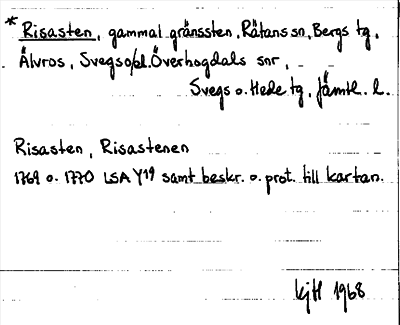 * Risasten, gammal gränssten, Rätans sn, Bergs tg,
Älvros, Svegs o/el. Överhogdals snr,
Svegs o. Hede tg, Jämtl. l.
Risasten, Risastenen
1769 o. 1770 LSA Y19 samt beskr. o. prot. till kartan.
1968